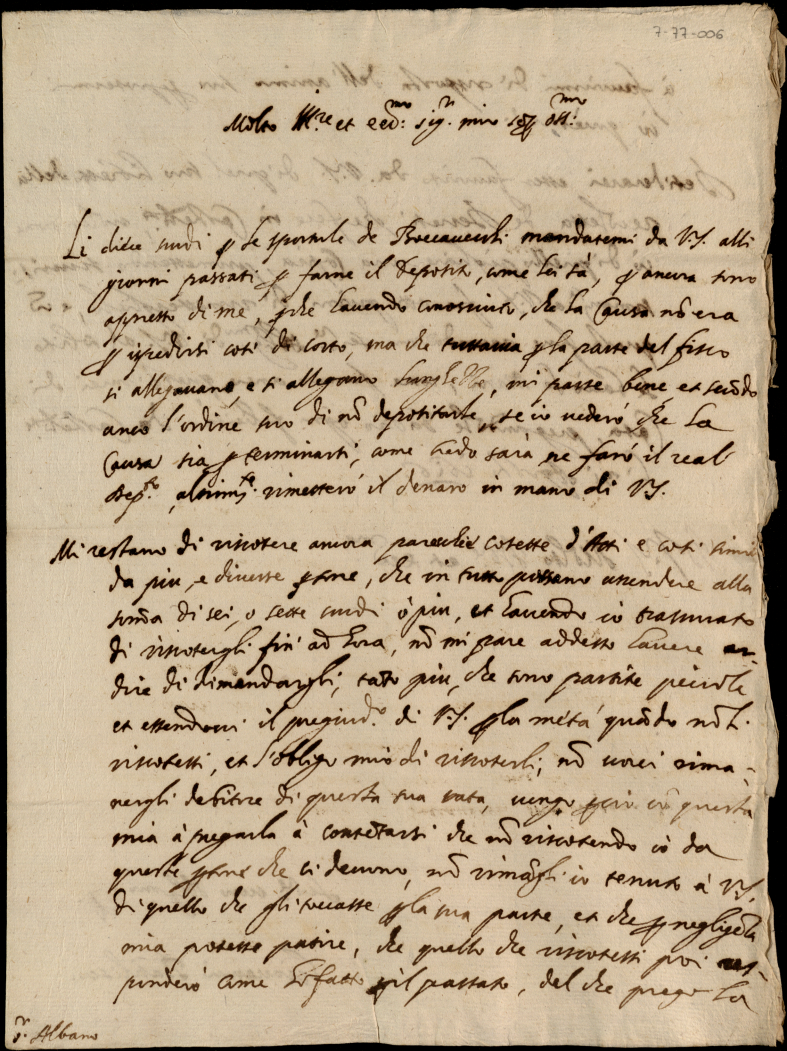 7-77-006
Molto Ill.re et ecc.mo sig.r mio oss.mo
Li dieci scudi p le sportule de Boccacecoli mandatemi da V.S. alli
giorni passati p farne il deposito, come lei sà, p ancora sono
appresso di me, pche havendo conosciuto, che la Causa nō era
p ispedirsi così di corto, ma che tuttavia p la parte del fisco
si allegavano, e si allegano, mi parse bene et secōdo
anco l'ordine suo di nō depositarle, se io vederò che la
Causa sia p terminarsi, come credo sarà, ne farò il real
dep.to, altrim.te rimetterò il denaro in mano di V.S.
Mi restano di riscotere ancora parecchie cosette d'Atti e cose simili
da piu, e diverse psone, che in tutto possono ascendere alla
somā di sei, o sette scudi ò piu, et havendo io trascurato
di riscotergli fin' ad hora, nō mi pare addesso havere ar-
dire di dimandargli, tāto piu, che sono partite piccole
et essendovi il pregiud.o di V.S. p la metà quādo nō li
riscotessi, et l'obligo mio di riscoterli, nō vorei rima-
nergli debitore di questa sua rata, vengo pciò cō questa
mia à pregarla à contētarsi che nō riscotendo io da
queste psone che ci devono, nō rimāghi io tenuto à V.S.
di quello che gli toccasse p la sua parte, et che p negligēza
mia potesse patire, che quello che riscotessi poi res-
ponderò come hò fatto p il passato, del che prego la
s.r Albano